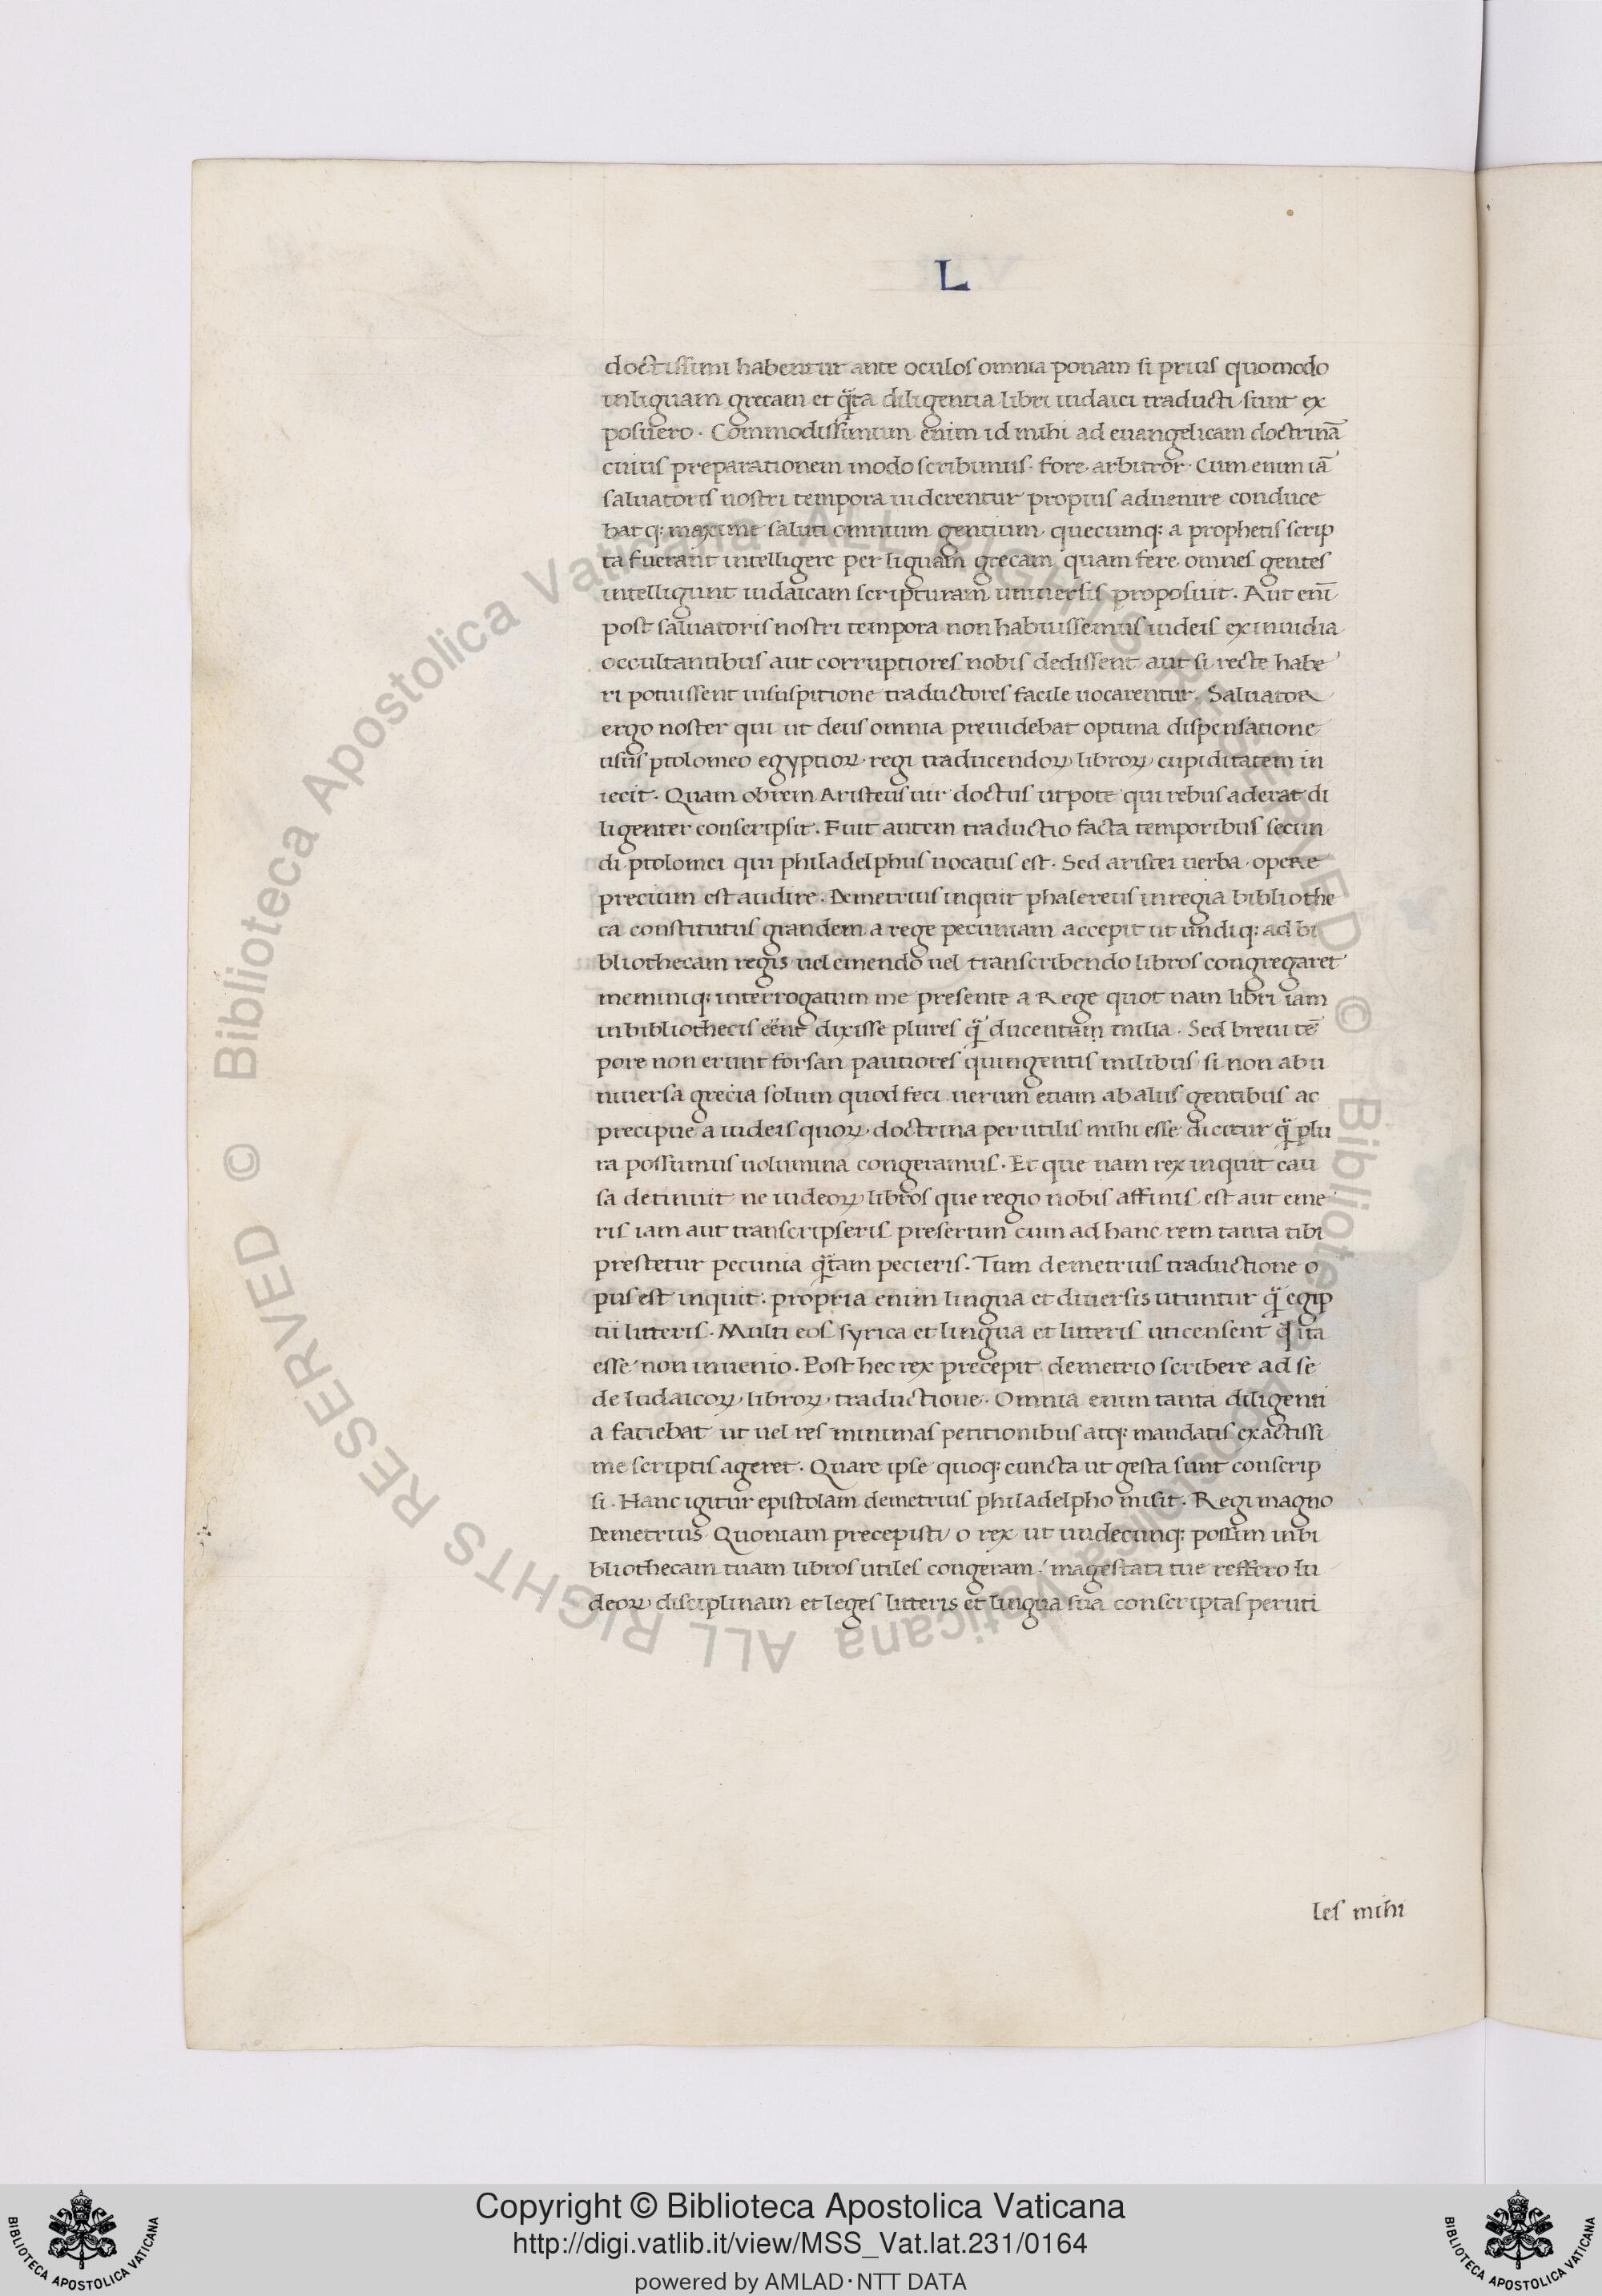 L
doctissimi habentur ante oculos omnia ponam si prius quomodo
inliguam grecam et q̃ta diligentia libri iudaici traducti sunt ex
posuero · Commodissimum enim id mihi ad euangelicam doctrinā
cuius preparationem modo scribimus · fore arbitror · Cum enim iā
saluatoris nostri tempora uiderentur propius aduenire conduce
bat q: maxime saluti omnium gentium quecumq: a prophetis scrip
ta fuerant intelligere per liguam grecam quam fere omnes gentes
intelligunt iudaicam scripturam uniuersis proposuit · Aut eni͞
post saluatoris nostri tempora non habuissemus iudeis ex inuidia
occultantibus aut corruptiores nobis dedissent aut si recte habe
ri potuissent insuspitione traductores facile uocarentur · Saluator
ergo noster qui ut deus omnia preuidebat optima dispensatione
usus ptolomeo egyptioꝝ regi traducendoꝝ libroꝝ cupiditatem in
iecit · Quam obrem Aristeus uir doctus utpote qui rebus aderat di
ligenter conscripsit · Fuit autem traductio facta temporibus secun
di ptolomei qui philadelphus uocatus est · Sed aristei uerba · opere
precium est audire · Demetrius inquit phalereus inregia bibliothe
ca constitutus grandem a rege pecuniam accepit ut undiq: ad bi
bliothecam regis uel emendo uel transcribendo libros congregaret
meminiq: interrogatum me presente a Rege quot nam libri iam
inbibliothecis eēnt dixisse plures q̃ ducentam milia · Sed breui tē
pore non erunt forsan pautiores quingentis milibus si non abu
niuersa grecia solum quod feci uerum etiam abalus gentibus ac
precipue a iudeis quoꝝ doctrina perutilis mihi esse dicitur q̃ plu
ra possumus uolumina congeramus · Et que nam rex inquit cau
sa detinuit ne iudeoꝝ libros que regio nobis affinis est aut eme
ris iam aut transcripseris presertim cum ad hanc rem tanta tibi
prestetur pecunia q̃tam pecieris · Tum demetrius traductione o
pus est inquit · propria enim lingua et diuersis utuntur q̃ egip
tii litteris · Multi eos syrica et lingua et litteris uticensent qd̕ ita
esse non inuenio · Post hec rex precepit demetrio scribere ad se
de Iudaicoꝝ libroꝝ traductione · Omnia enim tanta diligenti
a faciebat ut uel res minimas petitionibus atq: mandatis exactissi
me scriptis ageret · Quare ipse quoq: cuncta ut gesta sunt conscrip
si · Hanc igitur epistolam demetrius philadelpho misit · Regi magno
Demetrius Quoniam precepisti o rex ut undecunq: possim inbi
bliothecam tuam libros utiles congeram · magestati tue reffero Iu
deoꝝ disciplinam et leges litteris et lingua sua conscriptas peruti
les mihi
© Biblioteca Apostolica Vaticana ALL RIGHTS RESERVED © Biblioteca Apostolica Vaticana ALL RIGHTS RESERVED
Copyright © Biblioteca Apostolica Vaticana
http://digi.vatlib.it/view/MSS_Vat.lat.231/0164
powered by AMLAD·NTT DATA
BIBLIOTECA APOSTOLICA VATICANA
BIBLIOTECA APOSTOLICA VATICANA